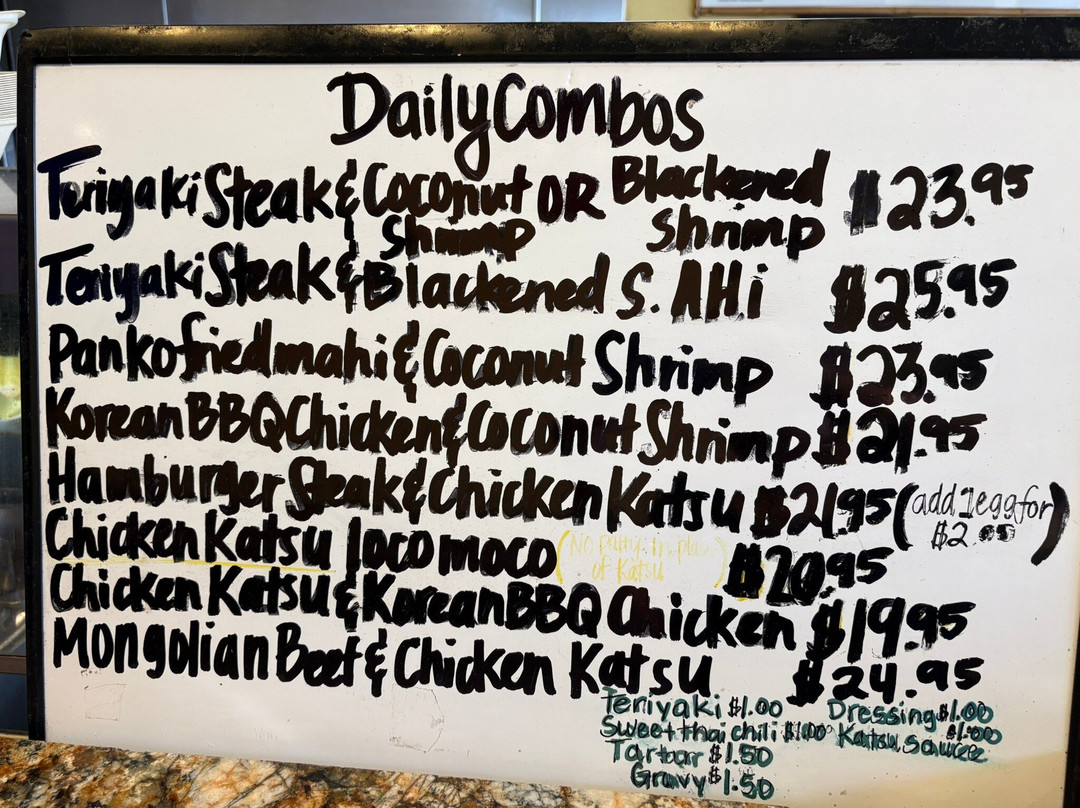 Daily Combos
Teriyaki Steak & Coconut Shrimp OR Blackened Shrimp $23.95
Teriyaki Steak & Blackened S. AHi $25.95
Panko fried mahi & Coconut Shrimp $23.95
Korean BBQ Chicken & Coconut Shrimp $21.95
Hamburger Steak & Chicken Katsu $21.95 (add 1 egg for $2.00)
Chicken Katsu loco moco (No Patty In plac of Katsu) $20.95
Chicken Katsu & Korean BBQ Chicken $19.95
Mongolian Beef & Chicken Katsu $24.95
Teriyaki $1.00 Dressing $1.00
Sweet thai chili $1.00 Katsu sauce $1.00
Tartar $1.50
Gravy $1.50